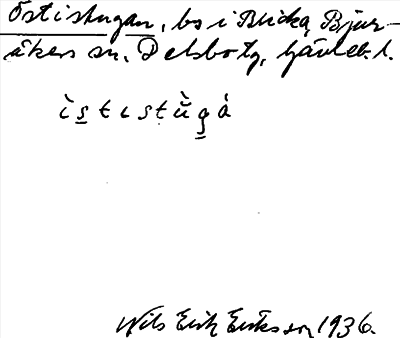 Östistugan, bs i Blicka, Bjur-
åkers sn, Delsbo tg, Gävleb. l.
ì s̲ t ɩ s t ù̆ g̲ á
Nils Erik Eriksson 1936.